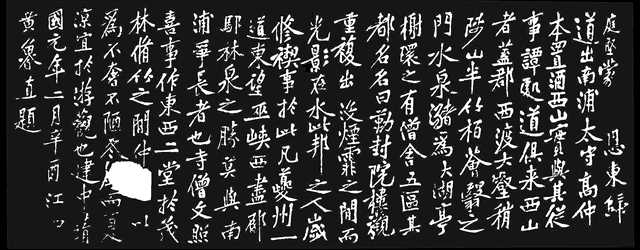 庭堅蒙 恩東歸
道出南浦太守高仲
本置酒西山實與其從
事譚處道俱來西山
者蓋郡西渡大壑稍
陟山半竹柏薈翳之
門水泉瀦為大湖亭
榭環之有僧舍五區其
都名名曰勒封院樓觀
重複出沒煙霏之間而
光影在水此邦之人歲
修禊事於此凡夔州一
道東望巫峽西盡郁
鄢林泉之勝莫與南
浦爭長者也寺僧文照
喜事作東西二堂於茂
林脩竹之間仲以
為不奢不陋冬而夏
涼宜於游觀也建中靖
國元年二月辛酉江
黃魯直題